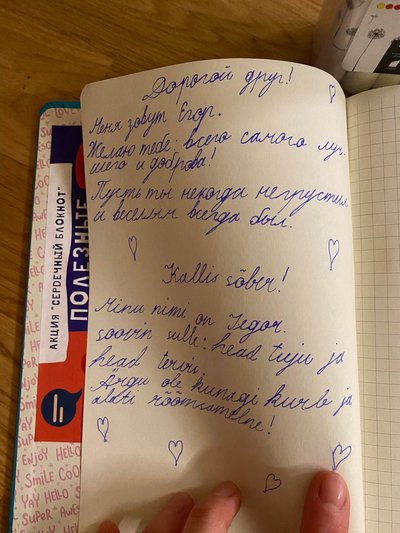 Дорогой друг!
Меня зовут Егор.
Желаю тебе: всего самого луч-
шего и доброва!
Пусть ты некогда негрустил
и веселым всегда был.
Kallis sõber!
Minu nimi on Jegor.
soovin sulle: head tuju ja
head tervis.
Ärgu ole kunagi kurb ja
alati rõõmsamelne!
АКЦИЯ "СЕРДЕЧНЫЙ БЛОКНОТ"
ПОЛЕЗНЫЕ
ENJOY HELL
SMILE COO
YAY HELLO S
SUPER AWES